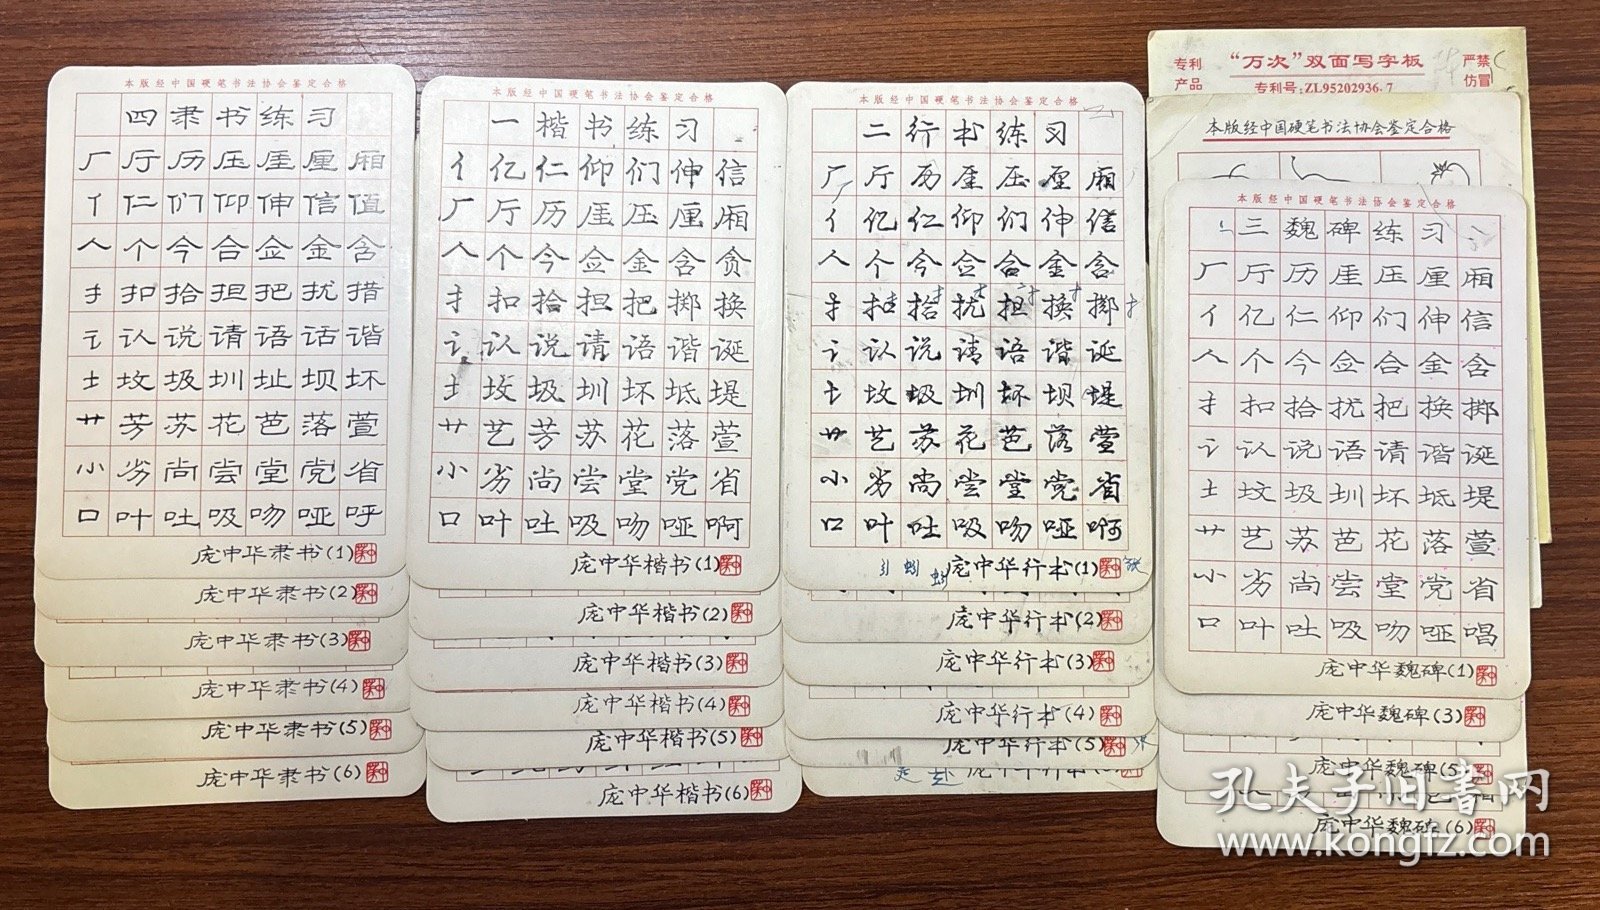 本版经中国硬笔书法协会鉴定合格
四隶书练习
厂厅历压厓厘厢
亻仁们仰伸信值
人个今合佥金含
扌扣拾担把扰措
讠认说请语话谐
土坟圾圳址坝坏
艹芳苏花芭落萱
小劣尚尝堂党省
口叶吐吸吻哑呼
庞中华隶书(1)
庞中华隶书(2)
庞中华隶书(3)
庞中华隶书(4)
庞中华隶书(5)
庞中华隶书(6)
本版经中国硬笔书法协会鉴定合格
一楷书练习
亻亿仁仰们伸信
厂厅历厓压厘厢
人个今佥金含贪
扌扣拾担把掷换
讠认说请语谐诞
土坟圾圳坏坻堤
艹艺芳苏花落萱
小劣尚尝堂党省
口叶吐吸吻哑啊
庞中华楷书(1)
庞中华楷书(2)
庞中华楷书(3)
庞中华楷书(4)
庞中华楷书(5)
庞中华楷书(6)
本版经中国硬笔书法协会鉴定合格
二行书练习
厂厅历厓压厘厢
亻亿仁仰们伸信
人个今佥含金含
扌拮拾扰担换掷
讠认说请语谐诞
土坟圾圳坏坝堤
艹艺苏花芭落萱
小劣尚尝堂党省
口叶吐吸吻哑啊
庞中华行书(1)
庞中华行书(2)
庞中华行书(3)
庞中华行书(4)
庞中华行书(5)
专利产品
“万次”双面写字板
专利号:ZL95202936.7
严禁仿冒
本版经中国硬笔书法协会鉴定合格
本版经中国硬笔书法协会鉴定合格
三魏碑练习
厂厅历厓压厘厢
亻亿仁仰们伸信
人个今佥合金含
扌扣拾扰把换掷
讠认说语请谐诞
土坟圾圳坏坻堤
艹艺苏芭花落萱
小劣尚尝堂党省
口叶吐吸吻哑唱
庞中华魏碑(1)
庞中华魏碑(3)
庞中华魏碑(5)
庞中华魏碑(6)
孔夫子旧书网
www.kongfz.com